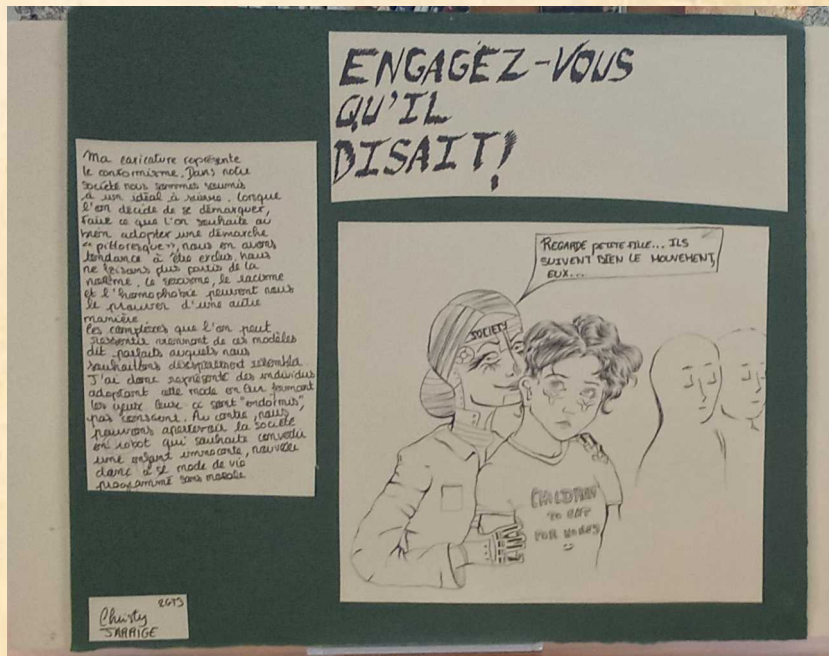 ENGAGEZ-VOUS
QU'IL
DISAIT!
Ma caricature représente
le conformisme. Dans notre
société nous sommes soumis
à un idéal à suivre. Lorsque
l'on décide de se démarquer,
faire ce que l'on souhaite ou
bien adopter une démarche
"pittoresque", nous en avons
tendance à être exclus. Nous
ne faisons plus partis de la
norme. Le sexisme, le racisme
et l'homophobie peuvent nous
le prouver d'une autre
manière
Les complexes que l'on peut
ressentir viennent de ces modèles
dit parfaits auxquels nous
souhaitons désespérément
J'ai donc représenté des individus
adoptant cette mode en leur fermant
les yeux ceux ci sont "endormis",
pas conscient. Au centre, nous
pouvons la société
en robot qui souhaite convertir
une enfant innocente, nouvelle
dans se mode de vie
programmé sans morale
REGARDE PETITE FILLE... ILS
SUIVENT BIEN LE MOUVEMENT,
EUX...
SOCIETY
CHILDREN
TO EAT
FOR
Christy
JARRIGE